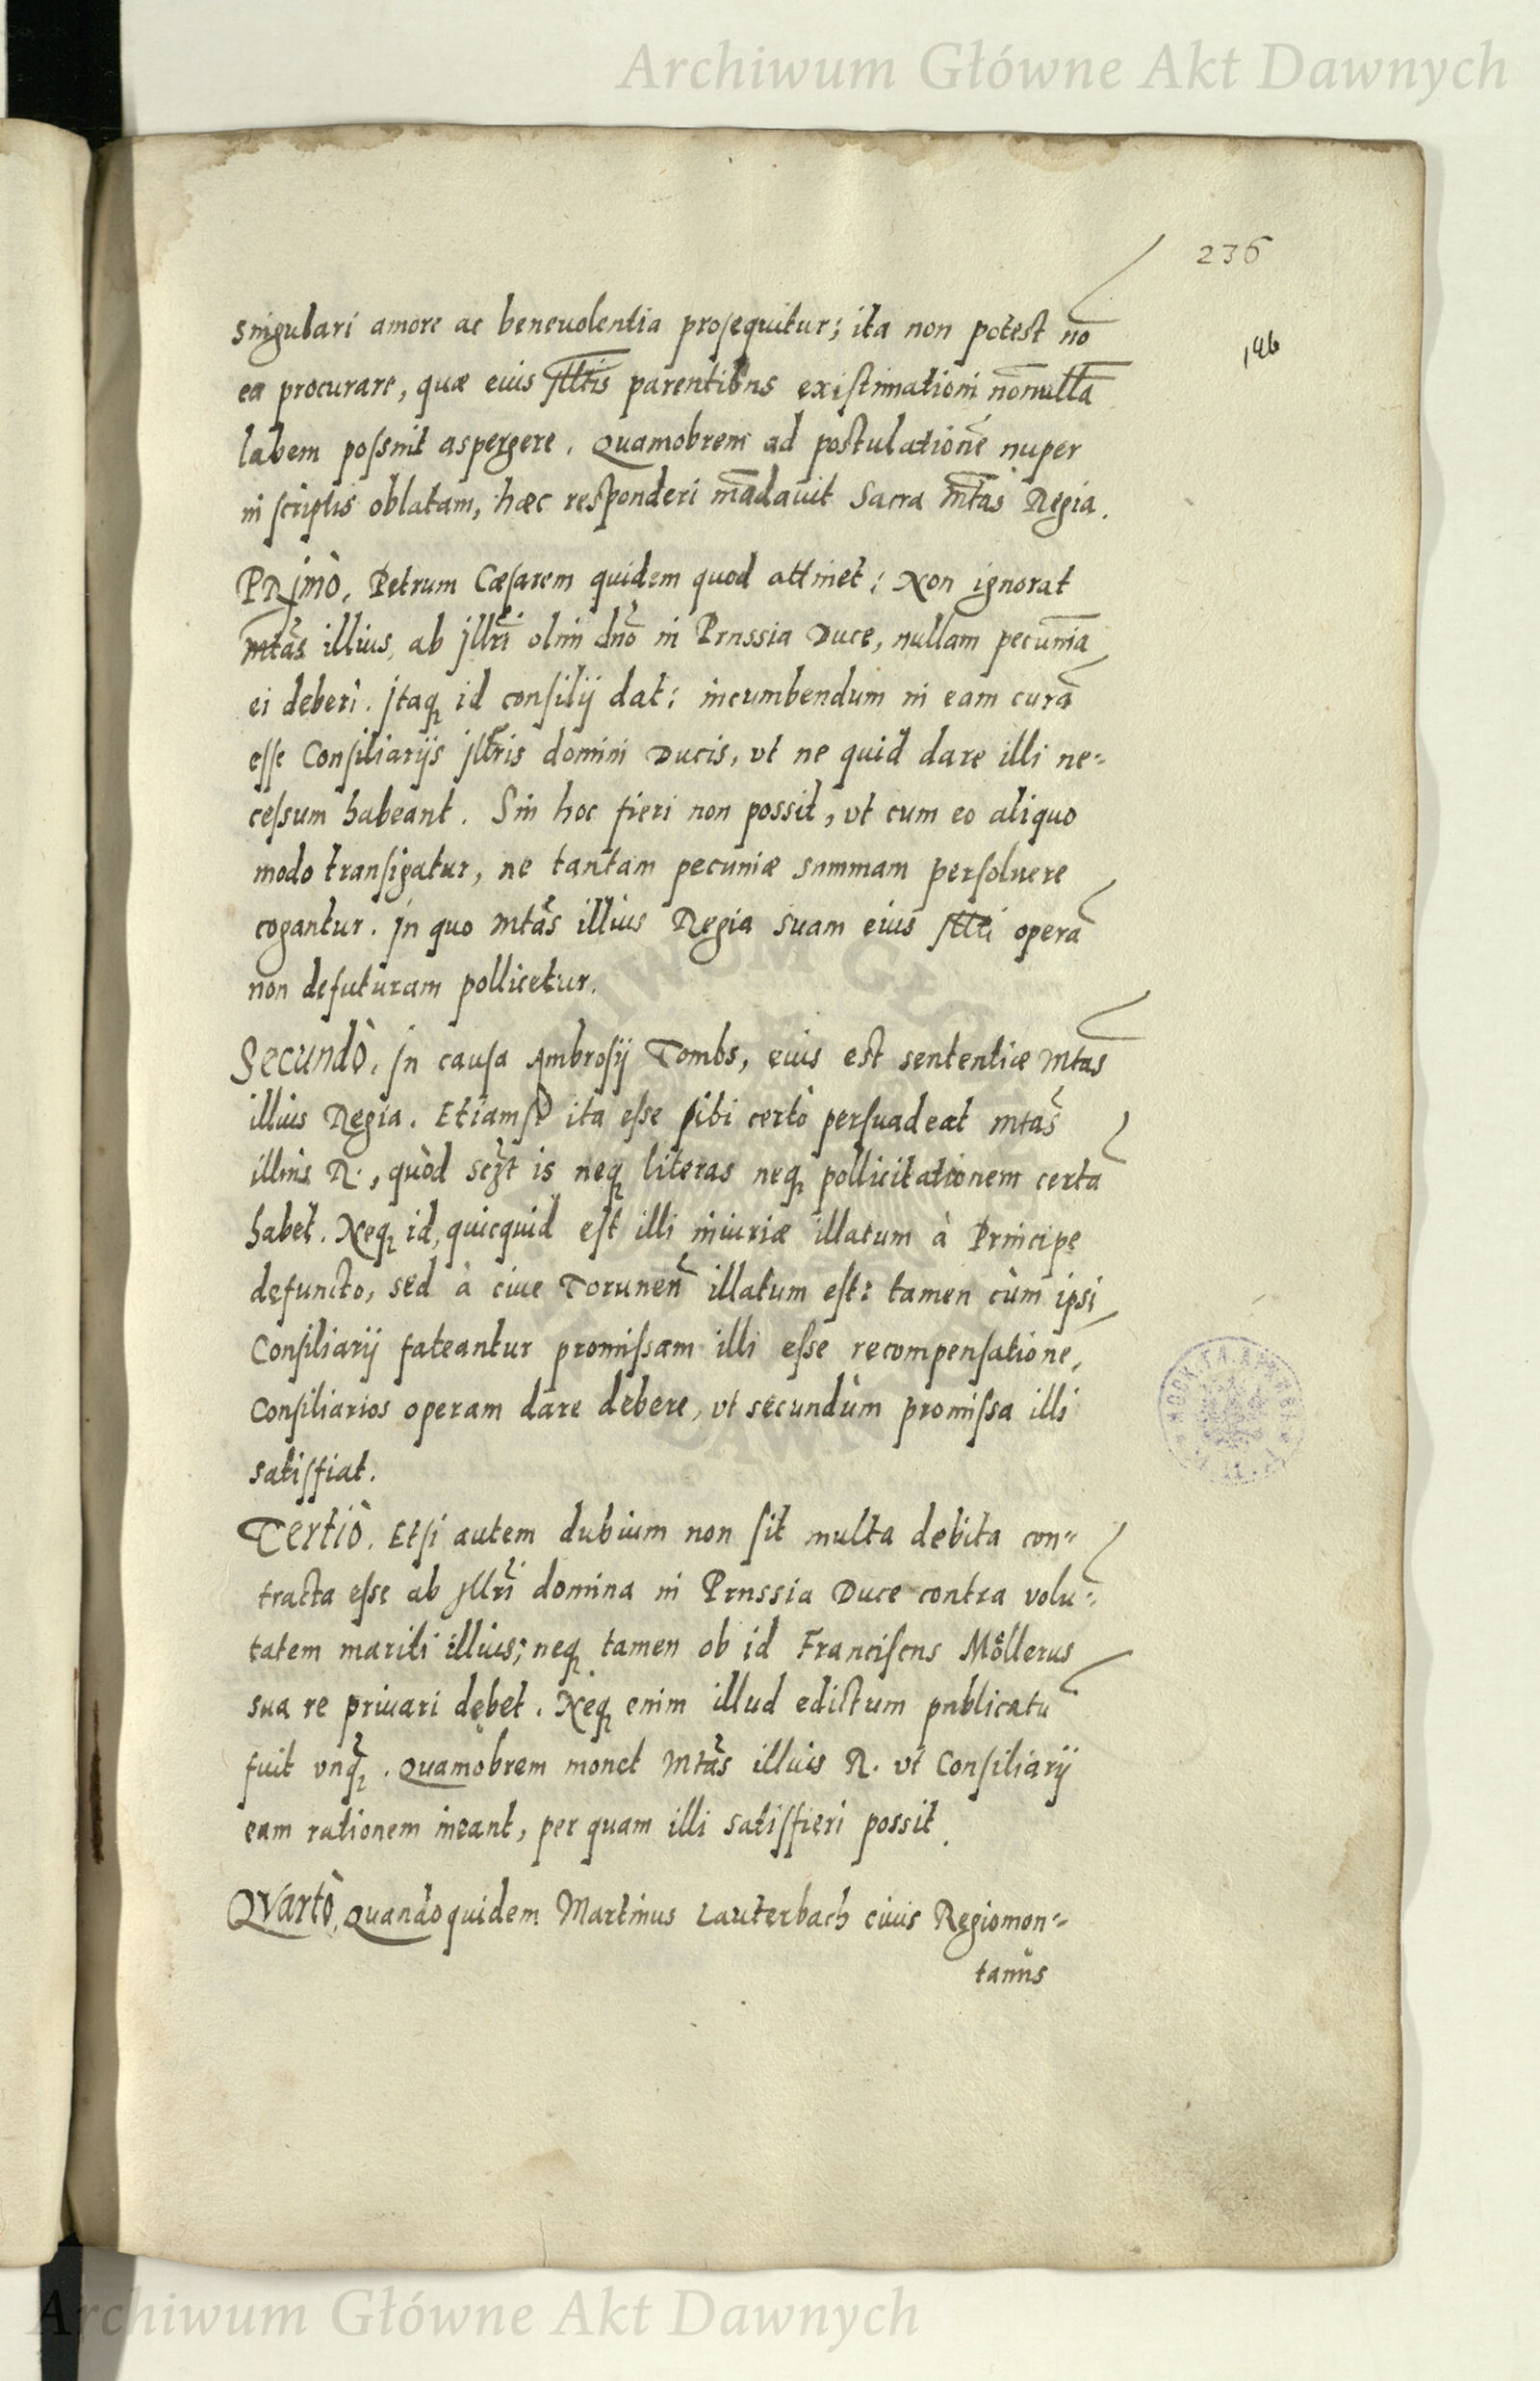 Archiwum Główne Akt Dawnych
236
196
singulari amore ac beneuolentia prosequitur; ita non potest nō
ea procurare, quæ eius Illtis parentibus existimationi nōnullā
labem possint aspergere. Quamobrem ad postulationē nuper
in scriptis oblatam, hæc responderi mādauit Sacra Mtas Regia.
PRimò, Petrum Cæsarem quidem quod attinet: Non ignorat
Mtas illius, ab Jllri olim dno in Prussia Duce, nullam pecuniā
ei deberi. Jtaq id consilij dat: incumbendum in eam curā
esse Consiliarijs Jllris domini Ducis, vt ne quid dare illi ne-
cessum habeant. Sin hoc fieri non possit, vt cum eo aliquo
modo transigatur, ne tantam pecuniæ summam persoluere
cogantur. Jn quo Mtas illius Regia suam eius Illti operā
non defuturam pollicetur.
Secundò, Jn causa Ambrosij Tombs, eius est sententiæ Mtas
illius Regia. Etiamsi ita esse sibi certò persuadeat Mtas
illius R., quòd sczt is neq literas neq pollicitationem certā
habet. Neq id, quicquid est illi iniuriæ illatum à Principe
defuncto, sed à ciue Torunen illatum est: tamen cùm ipsi
Consiliarij fateantur promissam illi esse recompensationē,
Consiliarios operam dare debere, vt secundùm promissa illi
satisfiat.
Tertiò. Etsi autem dubium non sit multa debita con-
tracta esse ab Jllri domina in Prussia Duce contra volū-
tatem mariti illius; neq tamen ob id Franciscus Möllerus
sua re priuari debet. Neq enim illud edictum publicatū
fuit vnq. Quamobrem monet Mtas illius R. vt Consiliarij
eam rationem ineant, per quam illi satisfieri possit.
QVartò, Quandoquidem Martinus Lauterbach ciuis Regiomon-
tanus
Archiwum Główne Akt Dawnych